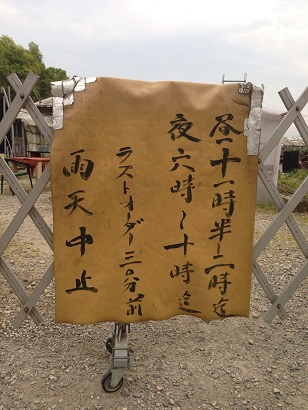 昼十一時半～二時迄
夜六時～十時迄
ラストオーダー三〇分前
雨天中止